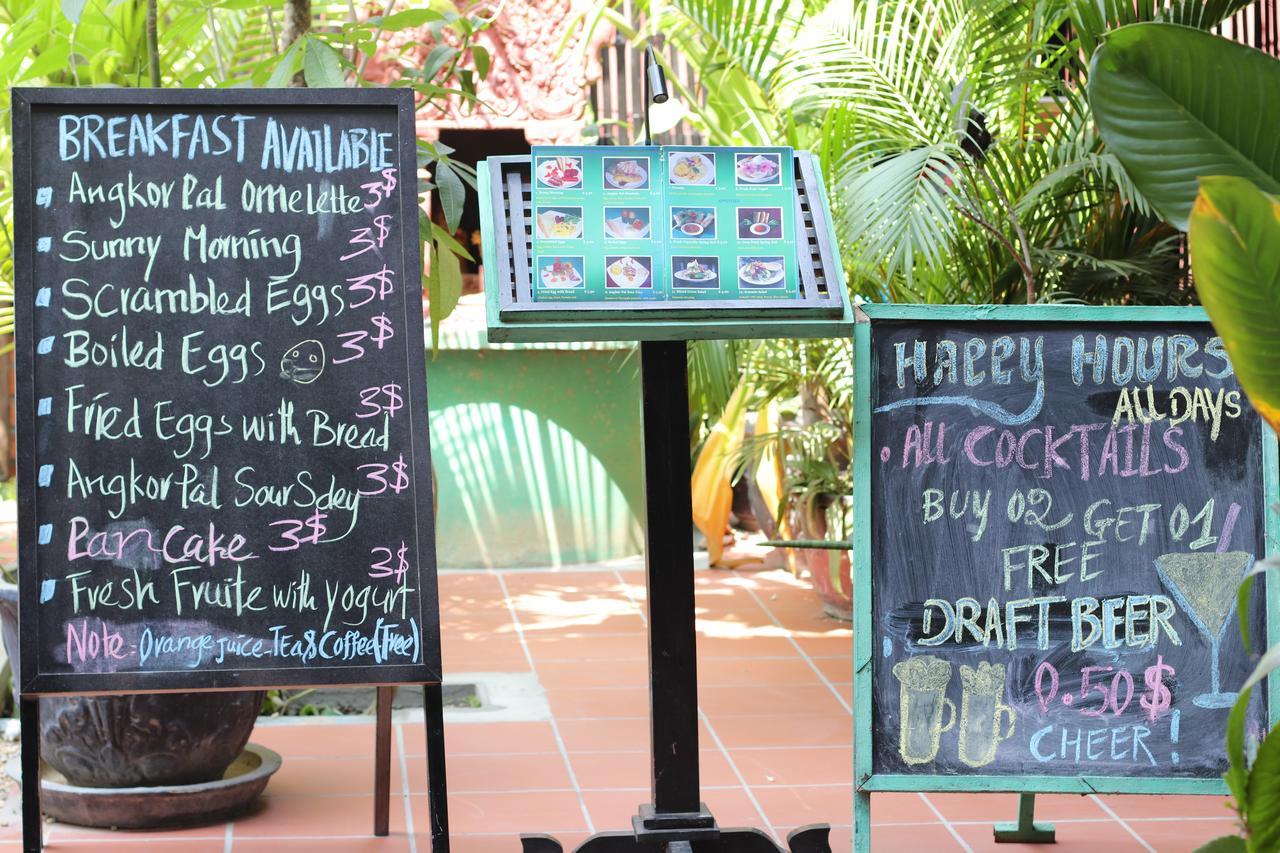 BREAKFAST AVAILABLE
Angkor Pal Omelette 3$
Sunny Morning 3$
Scrambled Eggs 3$
Boiled Eggs 3$
Fried Eggs with Bread 3$
AngkorPal SourSdey 3$
PanCake 3$
Fresh Fruite with yogurt 3$
Note: Orange juice_TEA&Coffee(Free)
HAPPY HOURS
ALL DAYS
ALL COCKTAILS
BUY 02 GET 01
FREE
DRAFT BEER
0.50$
CHEER!